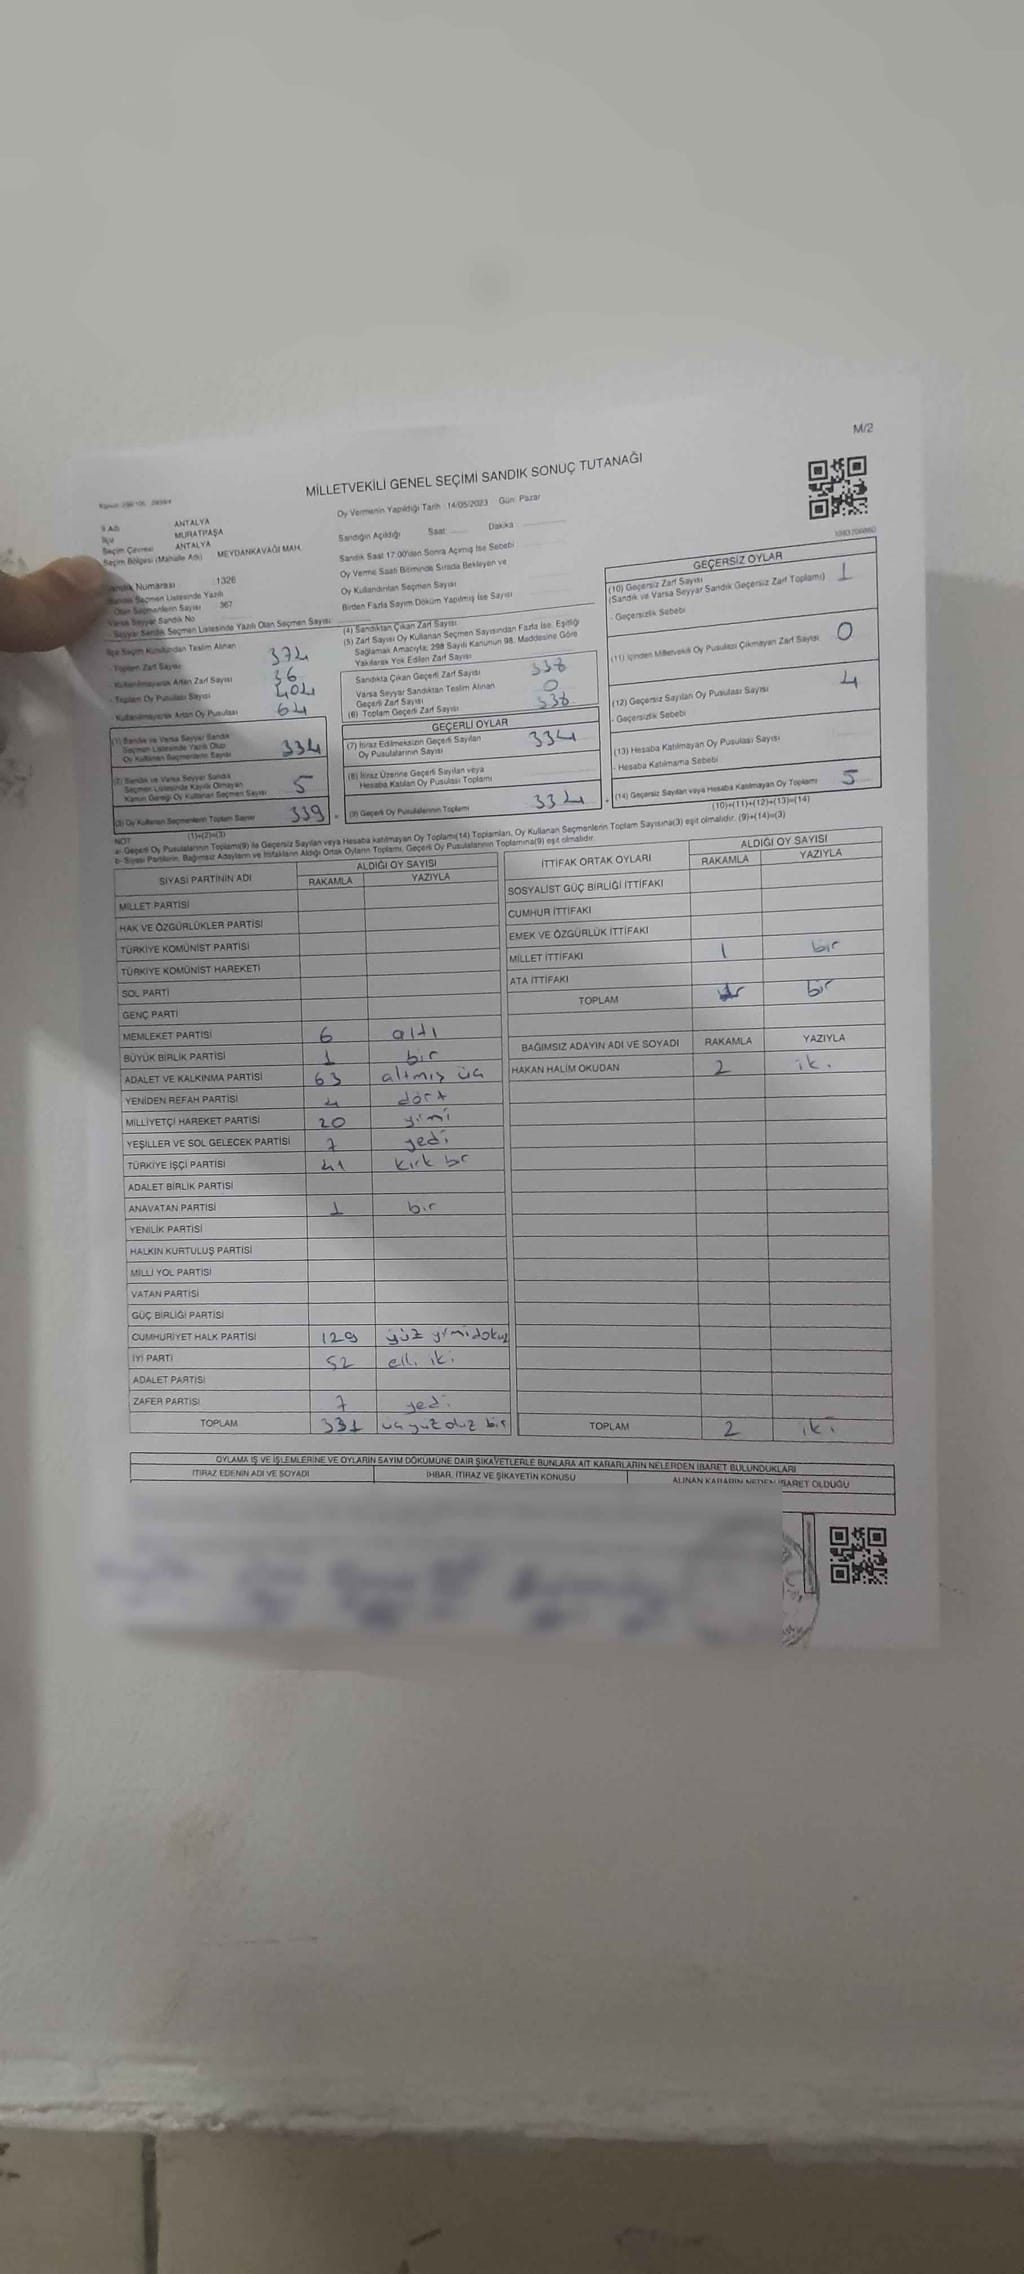 M/2
MİLLETVEKİLİ GENEL SEÇİMİ SANDIK SONUÇ TUTANAĞI
İl Adı ANTALYA
İlçe MURATPAŞA
Seçim Çevresi ANTALYA
Seçim Bölgesi (Mahalle Adı) MEYDANKAVAĞI MAH.
Sandık Numarası : 1326
Sandık Seçmen Listesinde Yazılı
Olan Seçmenlerin Sayısı 367
Varsa Seyyar Sandık No
- Seyyar Sandık Seçmen Listesinde Yazılı Olan Seçmen Sayısı:
Oy Vermenin Yapıldığı Tarih : 14/05/2023 Gün: Pazar
Sandığın Açıldığı Saat: Dakika :
Sandık Saat 17:00'den Sonra Açılmış İse Sebebi
Oy Verme Saati Bitiminde Sırada Bekleyen ve
Oy Kullandırılan Seçmen Sayısı
Birden Fazla Sayım Döküm Yapılmış İse Sayısı
İlçe Seçim Kurulundan Teslim Alınan
- Toplam Zarf Sayısı 374
- Kullanılmayarak Artan Zarf Sayısı 36
- Toplam Oy Pusulası Sayısı 404
- Kullanılmayarak Artan Oy Pusulası 64
(1) Sandık ve Varsa Seyyar Sandık
Seçmen Listesinde Yazılı Olup
Oy Kullanan Seçmenlerin Sayısı 334
(2) Sandık ve Varsa Seyyar Sandık
Seçmen Listesinde Kayıtlı Olmayan
Kanun Gereği Oy Kullanan Seçmen Sayısı 5
(3) Oy Kullanan Seçmenlerin Toplam Sayısı 339
(1)+(2)=(3)
(4) Sandıktan Çıkan Zarf Sayısı
(5) Zarf Sayısı Oy Kullanan Seçmen Sayısından Fazla İse, Eşitliği
Sağlamak Amacıyla, 298 Sayılı Kanunun 98. Maddesine Göre
Yakılarak Yok Edilen Zarf Sayısı
Sandıkta Çıkan Geçerli Zarf Sayısı 338
Varsa Seyyar Sandıktan Teslim Alınan
Geçerli Zarf Sayısı 0
(6) Toplam Geçerli Zarf Sayısı 338
GEÇERLİ OYLAR
(7) İtiraz Edilmeksizin Geçerli Sayılan
Oy Pusulalarının Sayısı 334
(8) İtiraz Üzerine Geçerli Sayılan veya
Hesaba Katılan Oy Pusulası Toplamı
(9) Geçerli Oy Pusulalarının Toplamı 334
GEÇERSİZ OYLAR
(10) Geçersiz Zarf Sayısı
(Sandık ve Varsa Seyyar Sandık Geçersiz Zarf Toplamı) 1
- Geçersizlik Sebebi
(11) İçinden Milletvekili Oy Pusulası Çıkmayan Zarf Sayısı 0
(12) Geçersiz Sayılan Oy Pusulası Sayısı 4
- Geçersizlik Sebebi
(13) Hesaba Katılmayan Oy Pusulası Sayısı
- Hesaba Katılmama Sebebi
(14) Geçersiz Sayılan veya Hesaba Katılmayan Oy Toplamı 5
(10)+(11)+(12)+(13)=(14)
NOT
a- Geçerli Oy Pusulalarının Toplamı(9) ile Geçersiz Sayılan veya Hesaba katılmayan Oy Toplamı(14) Toplamları, Oy Kullanan Seçmenlerin Toplam Sayısına(3) eşit olmalıdır. (9)+(14)=(3)
b- Siyasi Partilerin, Bağımsız Adayların ve İttifakların Aldığı Ortak Oyların Toplamı, Geçerli Oy Pusulalarının Toplamına(9) eşit olmalıdır.
SİYASİ PARTİNİN ADI ALDIĞI OY SAYISI
RAKAMLA YAZIYLA
MİLLET PARTİSİ
HAK VE ÖZGÜRLÜKLER PARTİSİ
TÜRKİYE KOMÜNİST PARTİSİ
TÜRKİYE KOMÜNİST HAREKETİ
SOL PARTİ
GENÇ PARTİ
MEMLEKET PARTİSİ 6 altı
BÜYÜK BİRLİK PARTİSİ 1 bir
ADALET VE KALKINMA PARTİSİ 63 altmış üç
YENİDEN REFAH PARTİSİ 4 dört
MİLLİYETÇİ HAREKET PARTİSİ 20 yirmi
YEŞİLLER VE SOL GELECEK PARTİSİ 7 yedi
TÜRKİYE İŞÇİ PARTİSİ 41 kırk bir
ADALET BİRLİK PARTİSİ
ANAVATAN PARTİSİ 1 bir
YENİLİK PARTİSİ
HALKIN KURTULUŞ PARTİSİ
MİLLİ YOL PARTİSİ
VATAN PARTİSİ
GÜÇ BİRLİĞİ PARTİSİ
CUMHURİYET HALK PARTİSİ 129 yüz yirmidokuz
İYİ PARTİ 52 elli iki
ADALET PARTİSİ
ZAFER PARTİSİ 7 yedi
TOPLAM 331 üçyüz otuz bir
İTTİFAK ORTAK OYLARI ALDIĞI OY SAYISI
RAKAMLA YAZIYLA
SOSYALİST GÜÇ BİRLİĞİ İTTİFAKI
CUMHUR İTTİFAKI
EMEK VE ÖZGÜRLÜK İTTİFAKI
MİLLET İTTİFAKI 1 bir
ATA İTTİFAKI
TOPLAM bir
BAĞIMSIZ ADAYIN ADI VE SOYADI RAKAMLA YAZIYLA
HAKAN HALİM OKUDAN 2 iki
TOPLAM 2 iki
OYLAMA İŞ VE İŞLEMLERİNE VE OYLARIN SAYIM DÖKÜMÜNE DAİR ŞİKAYETLERLE BUNLARA AİT KARARLARIN NELERDEN İBARET BULUNDUKLARI
İTİRAZ EDENİN ADI VE SOYADI İHBAR, İTİRAZ VE ŞİKAYETİN KONUSU ALINAN KARARIN NEDEN İBARET OLDUĞU